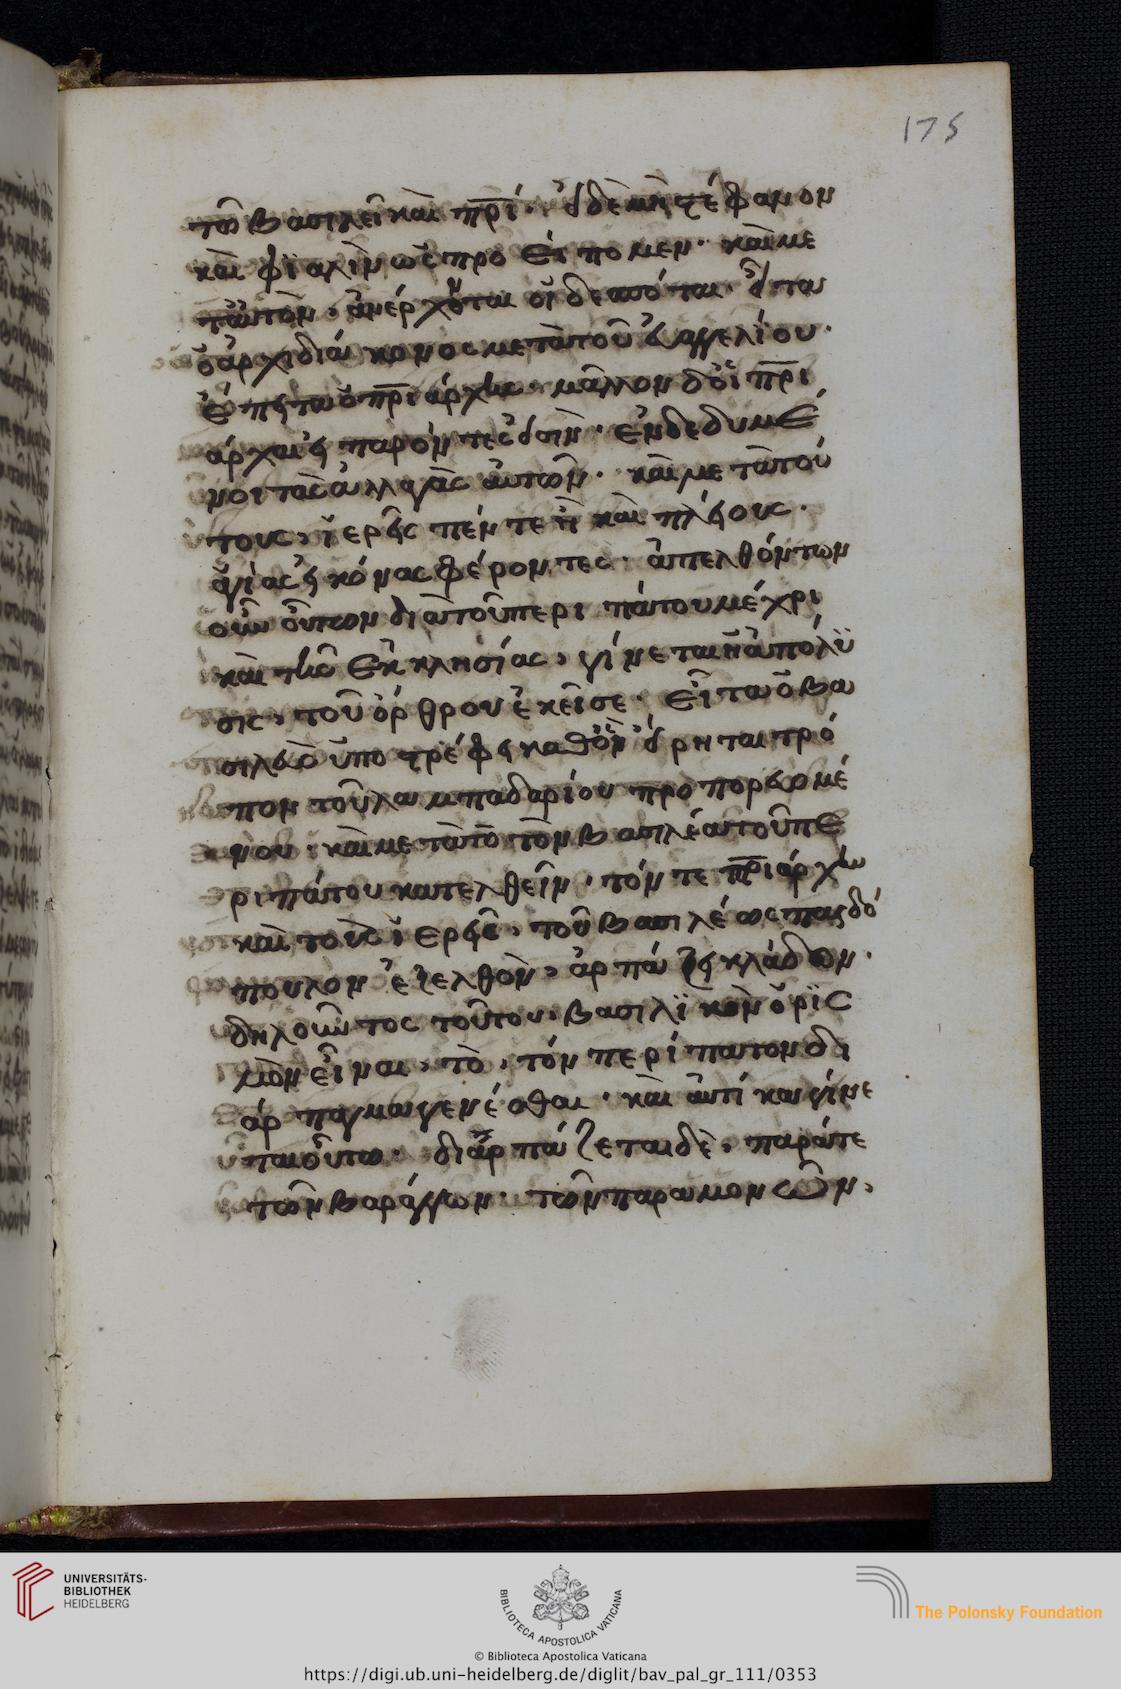 175
τῶ βασιλεῖ καὶ πρι. εἰ δὲ μὴ στέφανον
καὶ φϊαλὶν ὡς προ εἴπομεν. καὶ με
ταυτὸν, ἀνέρχονται οἱ δεσπόται. εἶτα
ὁ ἀρχιδιάκονος μετὰ τοῦ εὐαγγελίου.
ἔπειτα ὁ πρι άρχης. μᾶλλον δὲ οἱ πρι
άρχαι εἰ παρόντες εἰσὶν. ἐνδεδυμέ
νοι τὰς ἀλλαγὰς αὐτῶν. καὶ μετὰ τού
τους, ἱερεῖς πέντε ἢ καὶ πλείους.
ἁγίας εἰκόνας φέροντες. ἀπελθόντων
οὖν οὕτων διὰ τοῦ περιπάτου μέχρι
καὶ τῆς ἐκκλησίας, γίνεται ἡ ἀπόλϋ
σις, τοῦ ὄρθρου ἐκεῖσε. εἶτα ὁ βα
σιλεὺς ὑποστρέφει καθ' ὃν εἴρηται τρό
πον τοῦ λαμπαδαρίου προπορευομέ
νου. καὶ μετὰ τὸ τὸν βασιλέα τοῦ πε
ριπάτου κατελθεῖν. τόν τε πριάρχην
καὶ τοὺς ἱερεῖς, τοῦ βασιλέως παιδό
πουλον ἐξελθὸν, ἁρπάζει κλάδον.
δηλοῦντος τούτου, βασιλϊκὸν ὁρϊσ
μὸν εἶναι, τὸ, τόν περίπατον δι
άρπαγμα γενέσθαι. καὶ αὐτίκα γίνε
ται οὕτω. διαρπάζεται δὲ, παρά τε
τῶν βαράγγων. τῶν παραμονῶν,
UNIVERSITÄTS-
BIBLIOTHEK
HEIDELBERG
BIBLIOTECA APOSTOLICA VATICANA
The Polonsky Foundation
© Biblioteca Apostolica Vaticana
https://digi.ub.uni-heidelberg.de/diglit/bav_pal_gr_111/0353